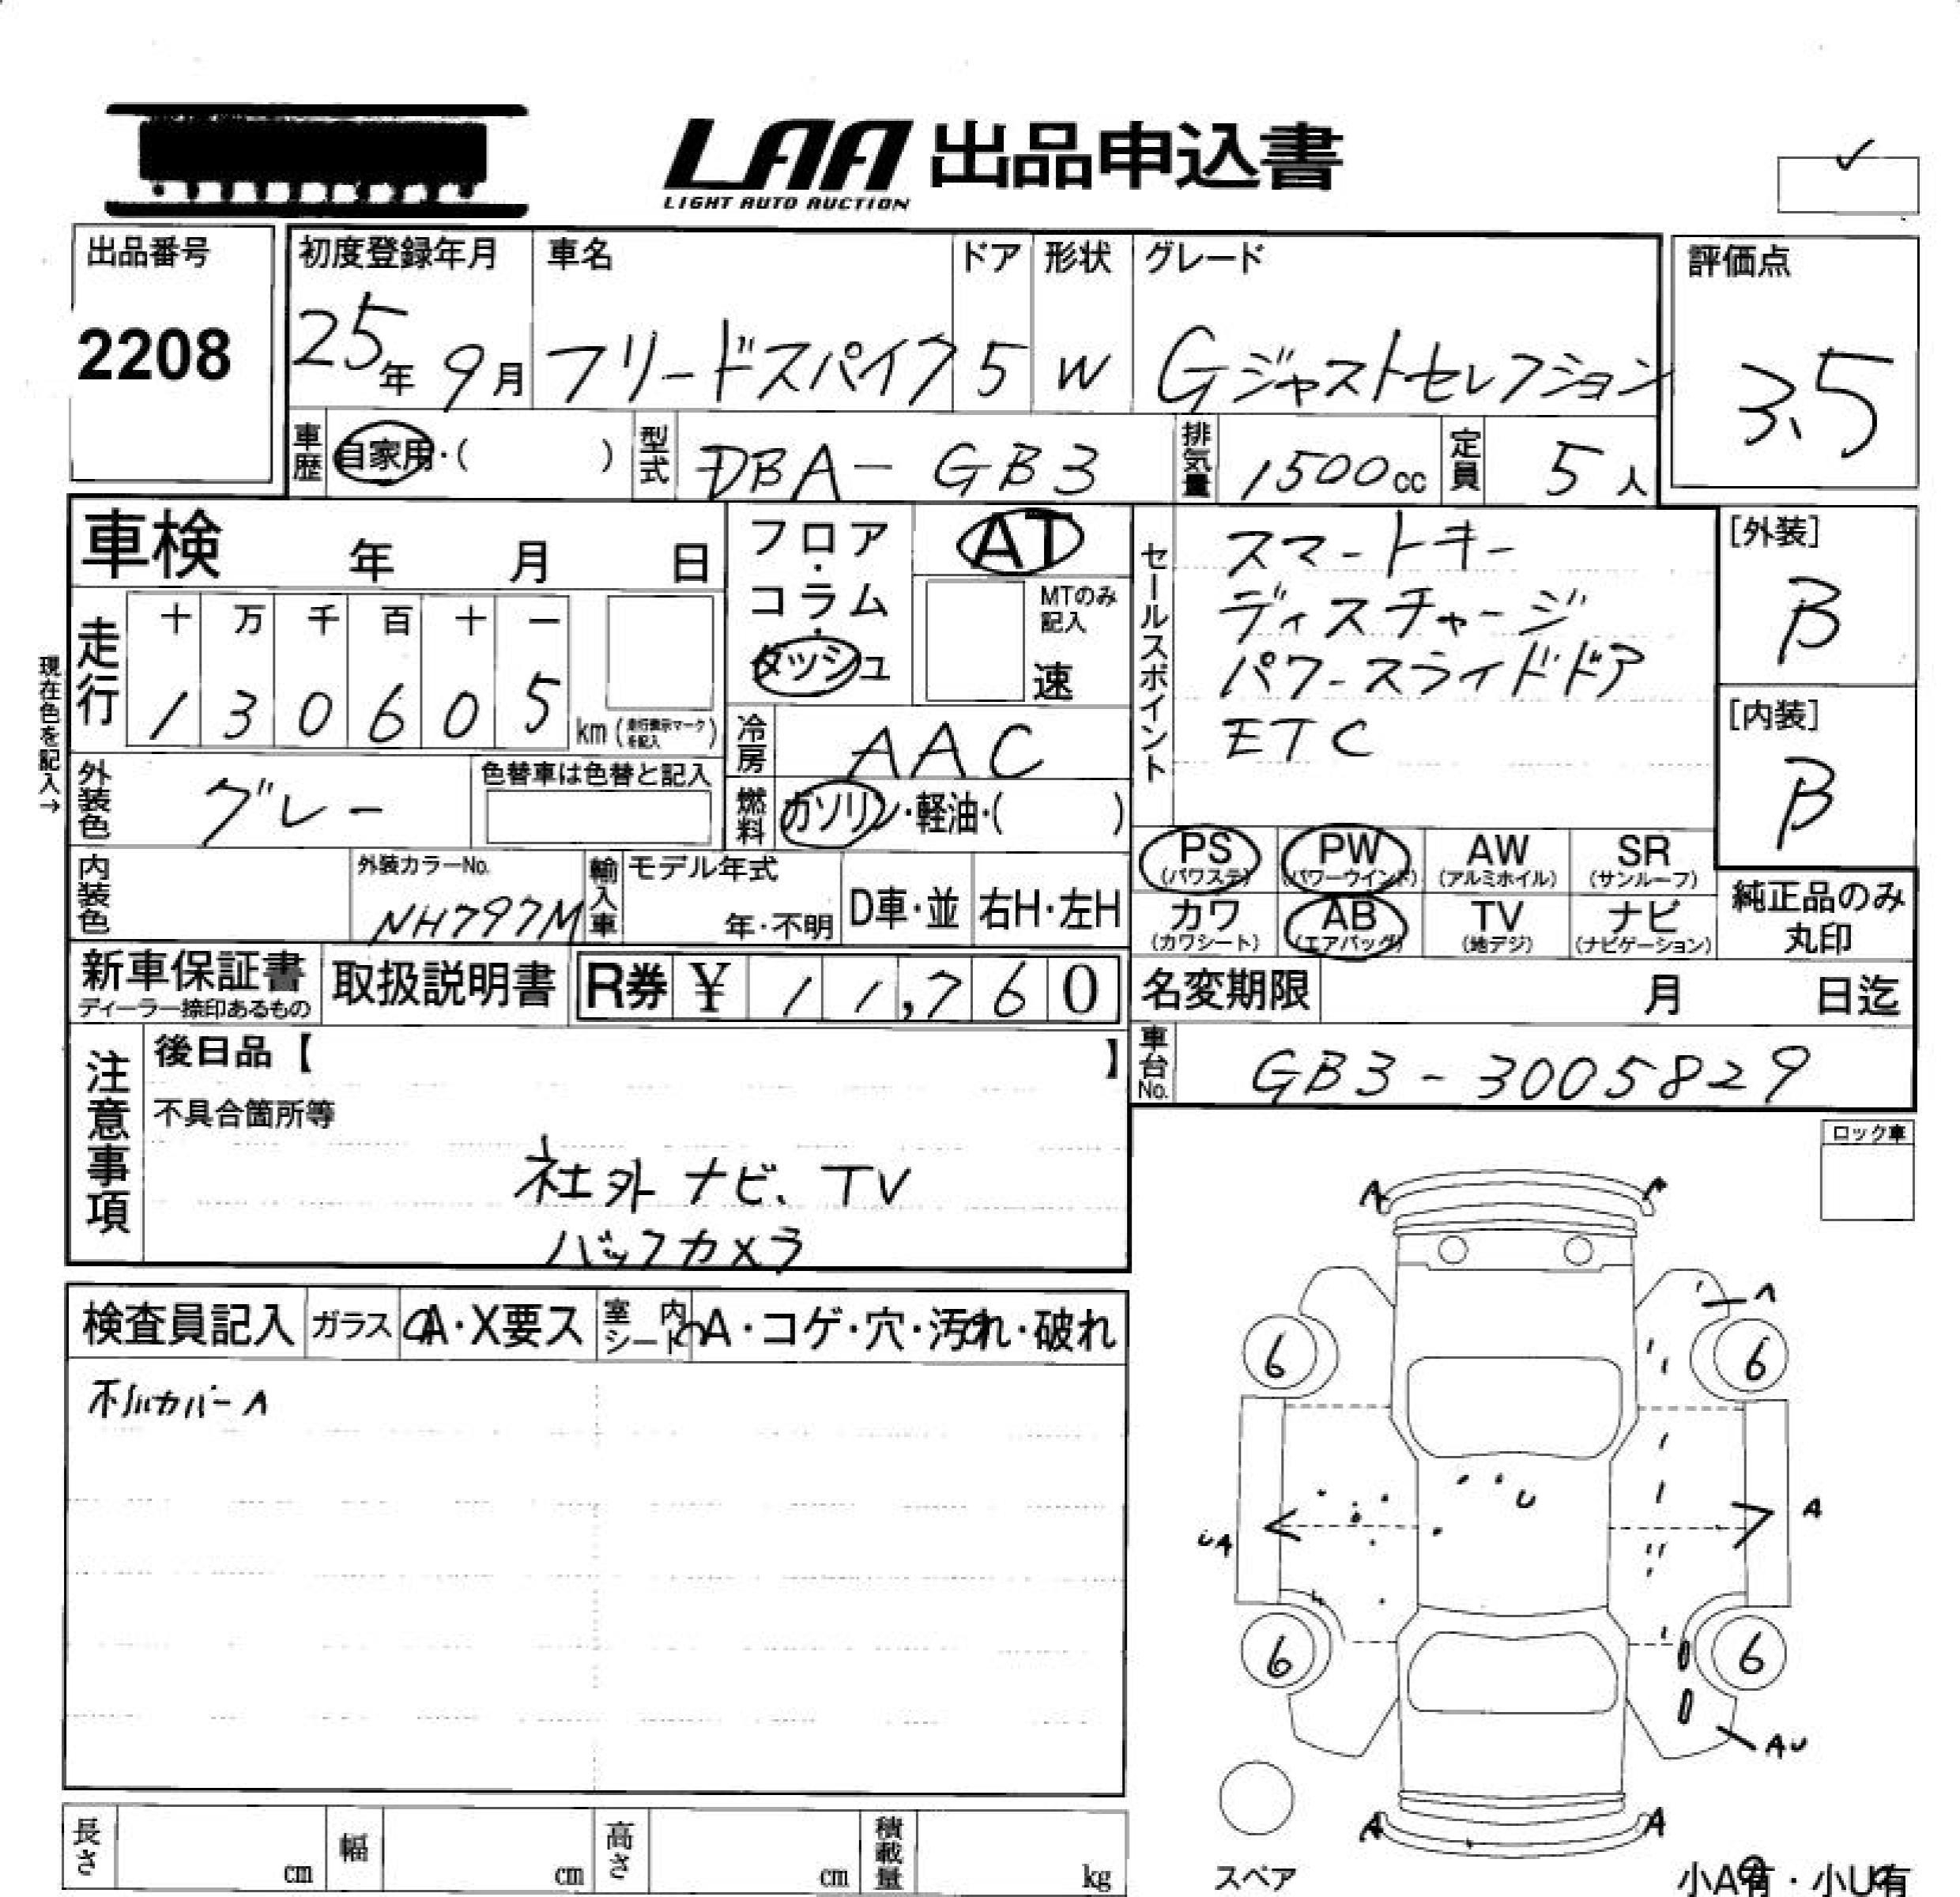 LAA 出品申込書
LIGHT AUTO AUCTION
出品番号
2208
初度登録年月
25年 9月
車名
フリードスパイク
ドア
5
形状
W
グレード
Gジャストセレクション
評価点
3.5
車歴 自家用・( )
型式 DBA-GB3
排気量 1500cc
定員 5人
車検 年 月 日
走行
十 万 千 百 十 一
1 3 0 6 0 5 km (走行表示マークを記入)
現在色を記入→
フロア・コラム・ダッシュ
AT
MTのみ記入
速
冷房 AAC
燃料 ガソリン・軽油・( )
外装色 グレー
色替車は色替と記入
内装色
外装カラーNo.
NH797M
輸入車
モデル年式
年・不明
D車・並
右H・左H
セールスポイント
スマートキー
ディスチャージ
パワースライドドア
ETC
[外装]
B
[内装]
B
PS (パワステ)
PW (パワーウインド)
AW (アルミホイル)
SR (サンルーフ)
カワ (カワシート)
AB (エアバッグ)
TV (地デジ)
ナビ (ナビゲーション)
純正品のみ丸印
新車保証書
ディーラー捺印あるもの
取扱説明書
R券 ¥ 11,760
名変期限 月 日迄
車台No. GB3-3005829
注意事項
後日品【 】
不具合箇所等
社外ナビ、TV
バックカメラ
ロック車
検査員記入
ガラス A・X要ス
室内シート A・コゲ・穴・汚れ・破れ
ホイルカバーA
A A
A
6 6
U
UA A
6 6
AU
A A
スペア
小A有・小U有
長さ cm
幅 cm
高さ cm
積載量 kg